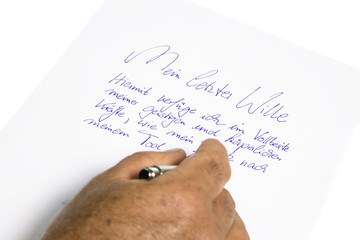 Mein letzter Wille
Hiermit verfüge ich im Vollbesitz
meiner geistigen und körperlichen
Kräfte, wie mein nach
meinem Tod